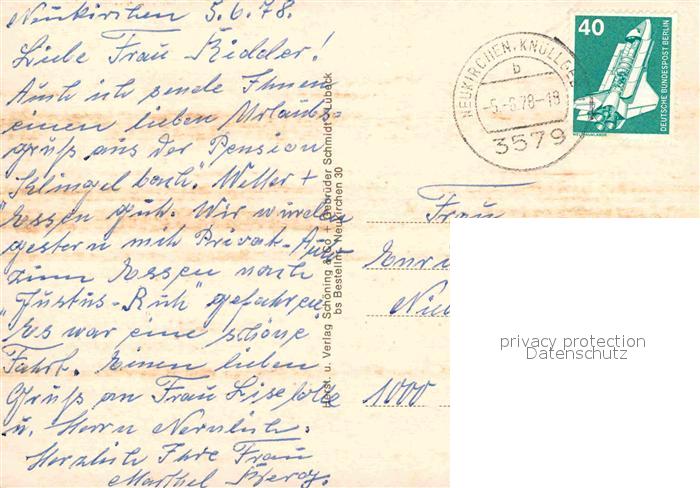 Neukirchen 5.6.78.
Liebe Frau Kidder!
Auch ich sende Ihnen
einen lieben Urlaubs-
gruß aus der Pension
"Klingelbach". Wetter +
Essen gut. Wir wurden
gestern mit Privat-Auto
zum Essen nach
"Justus-Ruh" gefahren.
Es war eine schöne
Fahrt. Einen lieben
Gruß an Frau Liselotte
u. Herrn
Herzlich Ihre Frau
Marthel
Horst. u. Verlag Schöning & Co + Gebrüder Schmidt, Lübeck
bs Bestellnr. Neukirchen 30
NEUKIRCHEN, KNÜLLGEB
b
-5.-6.78-18
3579
40
DEUTSCHE BUNDESPOST BERLIN
WELTRAUMLABOR
Frau
1000
privacy protection
Datenschutz